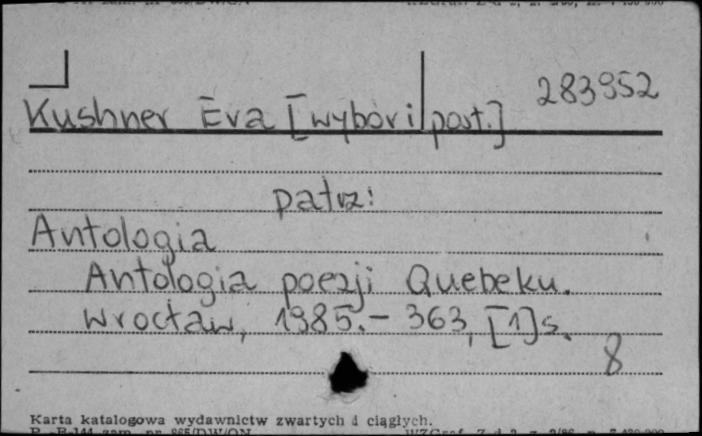 283952
Kushner Eva [wybór i post.]
patrz:
Antologia
Antologia poezji Quebeku.
Wrocław, 1985. - 363, [1] s.
8
Karta katalogowa wydawnictw zwartych i ciągłych.